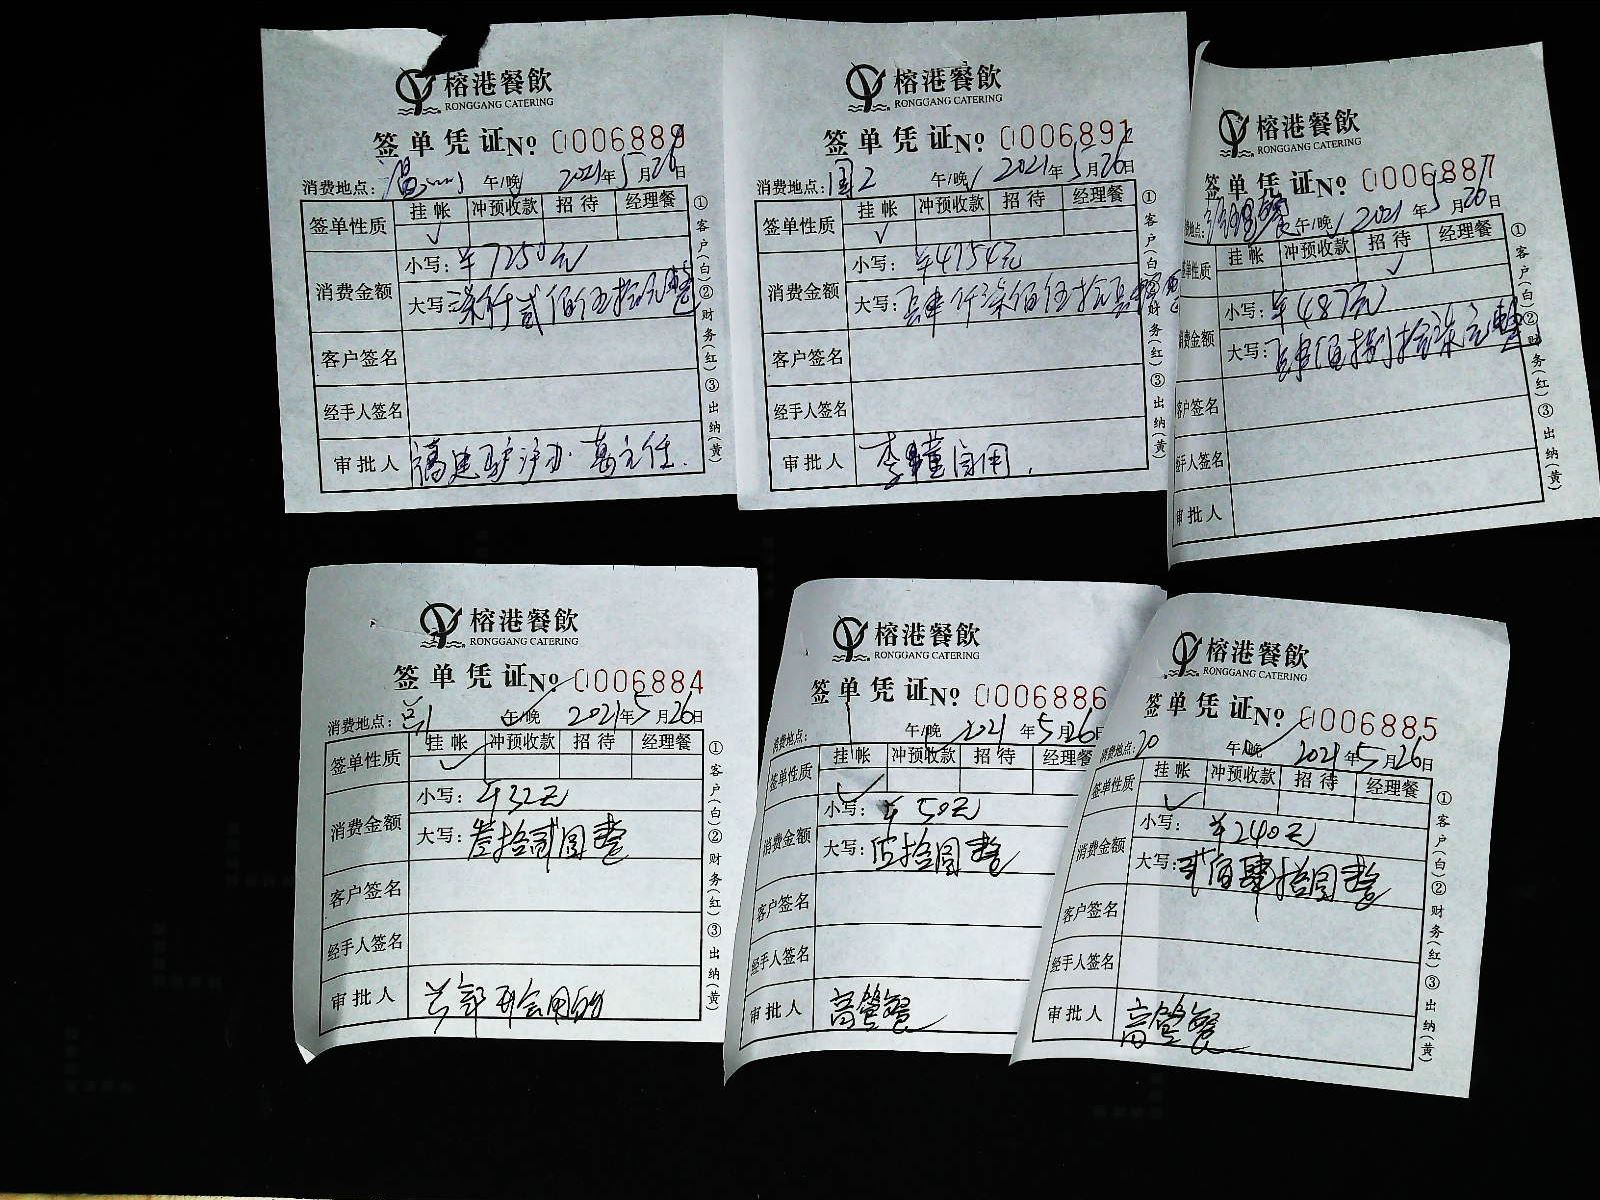 榕港餐飲
RONGGANG CATERING
签单凭证 № 0006889
消费地点: 温州 午/晚 2021年5月26日
签单性质 挂帐 冲预收款 招待 经理餐
✓
消费金额 小写: ¥7250元
大写: 柒仟贰佰伍拾元整
客户签名
经手人签名
审批人 福建驻沪办.万主任.
①客户(白)②财务(红)③出纳(黄)
榕港餐飲
RONGGANG CATERING
签单凭证 № 0006891
消费地点: 国2 午/晚 2021年5月26日
签单性质 挂帐 冲预收款 招待 经理餐
✓
消费金额 小写: ¥4754元
大写: 肆仟柒佰伍拾肆元整
客户签名
经手人签名
审批人 李董自用.
①客户(白)②财务(红)③出纳(黄)
榕港餐飲
RONGGANG CATERING
签单凭证 № 0006887
地点: 午/晚 2021年5月26日
单性质 挂帐 冲预收款 招待 经理餐
✓
消费金额 小写: ¥487元
大写: 肆佰捌拾柒元整
客户签名
经手人签名
审批人
①客户(白)②财务(红)③出纳(黄)
榕港餐飲
RONGGANG CATERING
签单凭证 № 0006884
消费地点: 吕1 午/晚 2021年5月26日
签单性质 挂帐 冲预收款 招待 经理餐
✓
消费金额 小写: ¥32元
大写: 叁拾贰圆整
客户签名
经手人签名
审批人 开会用
①客户(白)②财务(红)③出纳(黄)
榕港餐飲
RONGGANG CATERING
签单凭证 № 0006886
消费地点: 午/晚 2021年5月26日
签单性质 挂帐 冲预收款 招待 经理餐
✓
消费金额 小写: ¥50元
大写: 伍拾圆整
客户签名
经手人签名
审批人 高管餐
榕港餐飲
RONGGANG CATERING
签单凭证 № 0006885
消费地点: 20 午/晚 2021年5月26日
签单性质 挂帐 冲预收款 招待 经理餐
✓
消费金额 小写: ¥240元
大写: 贰佰肆拾圆整
客户签名
经手人签名
审批人 高管餐
①客户(白)②财务(红)③出纳(黄)